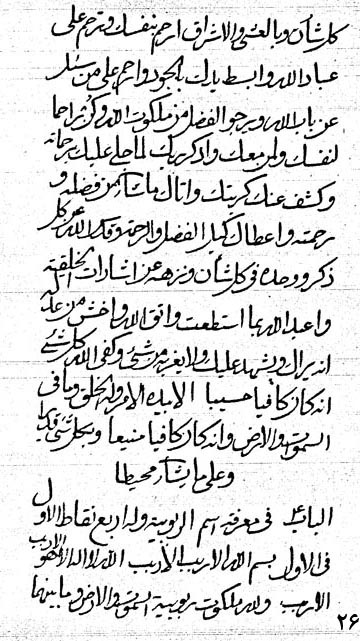 كل شأن وبالعشي والاشراق ارحم نفسك وترحم على
عباد الله وابسط يدك بالجود وارحم على من سئل
عن باب الله ويرجو الفضل من ملكوت الله وكن راحما
لنفسك ولمن معك واذكر ربك لما حل عليك برحمته
وكشف عنك كربتك واتاك ما سئلت من فضله و
رحمته واعطاك كل الفضل والرحمة وقدس الله عن كل
ذكر ووحده في كل شأن ونزهه عن اشارات الخلقية
واعبد الله بما استطعت واتق الله واخش من عدله
انه يراك ويشهد عليك ولا يعزب من شيء وكفى الله كل شيء
انه كان كافيا حسيبا الا بيده الامر والخلق وما في
السموات والارض وانه كان كافيا منيعا وبكل شيء قديرا
وعلى ما يشاء محيطا
الباب في معرفة اسم الربوبية وله اربع نقاط الاول
في الاول بسم الله الارب الارب الله لا اله الا هو الارب
الارب ولله ملكوت ربوبية السموات والارض وما بينهما
٢۶